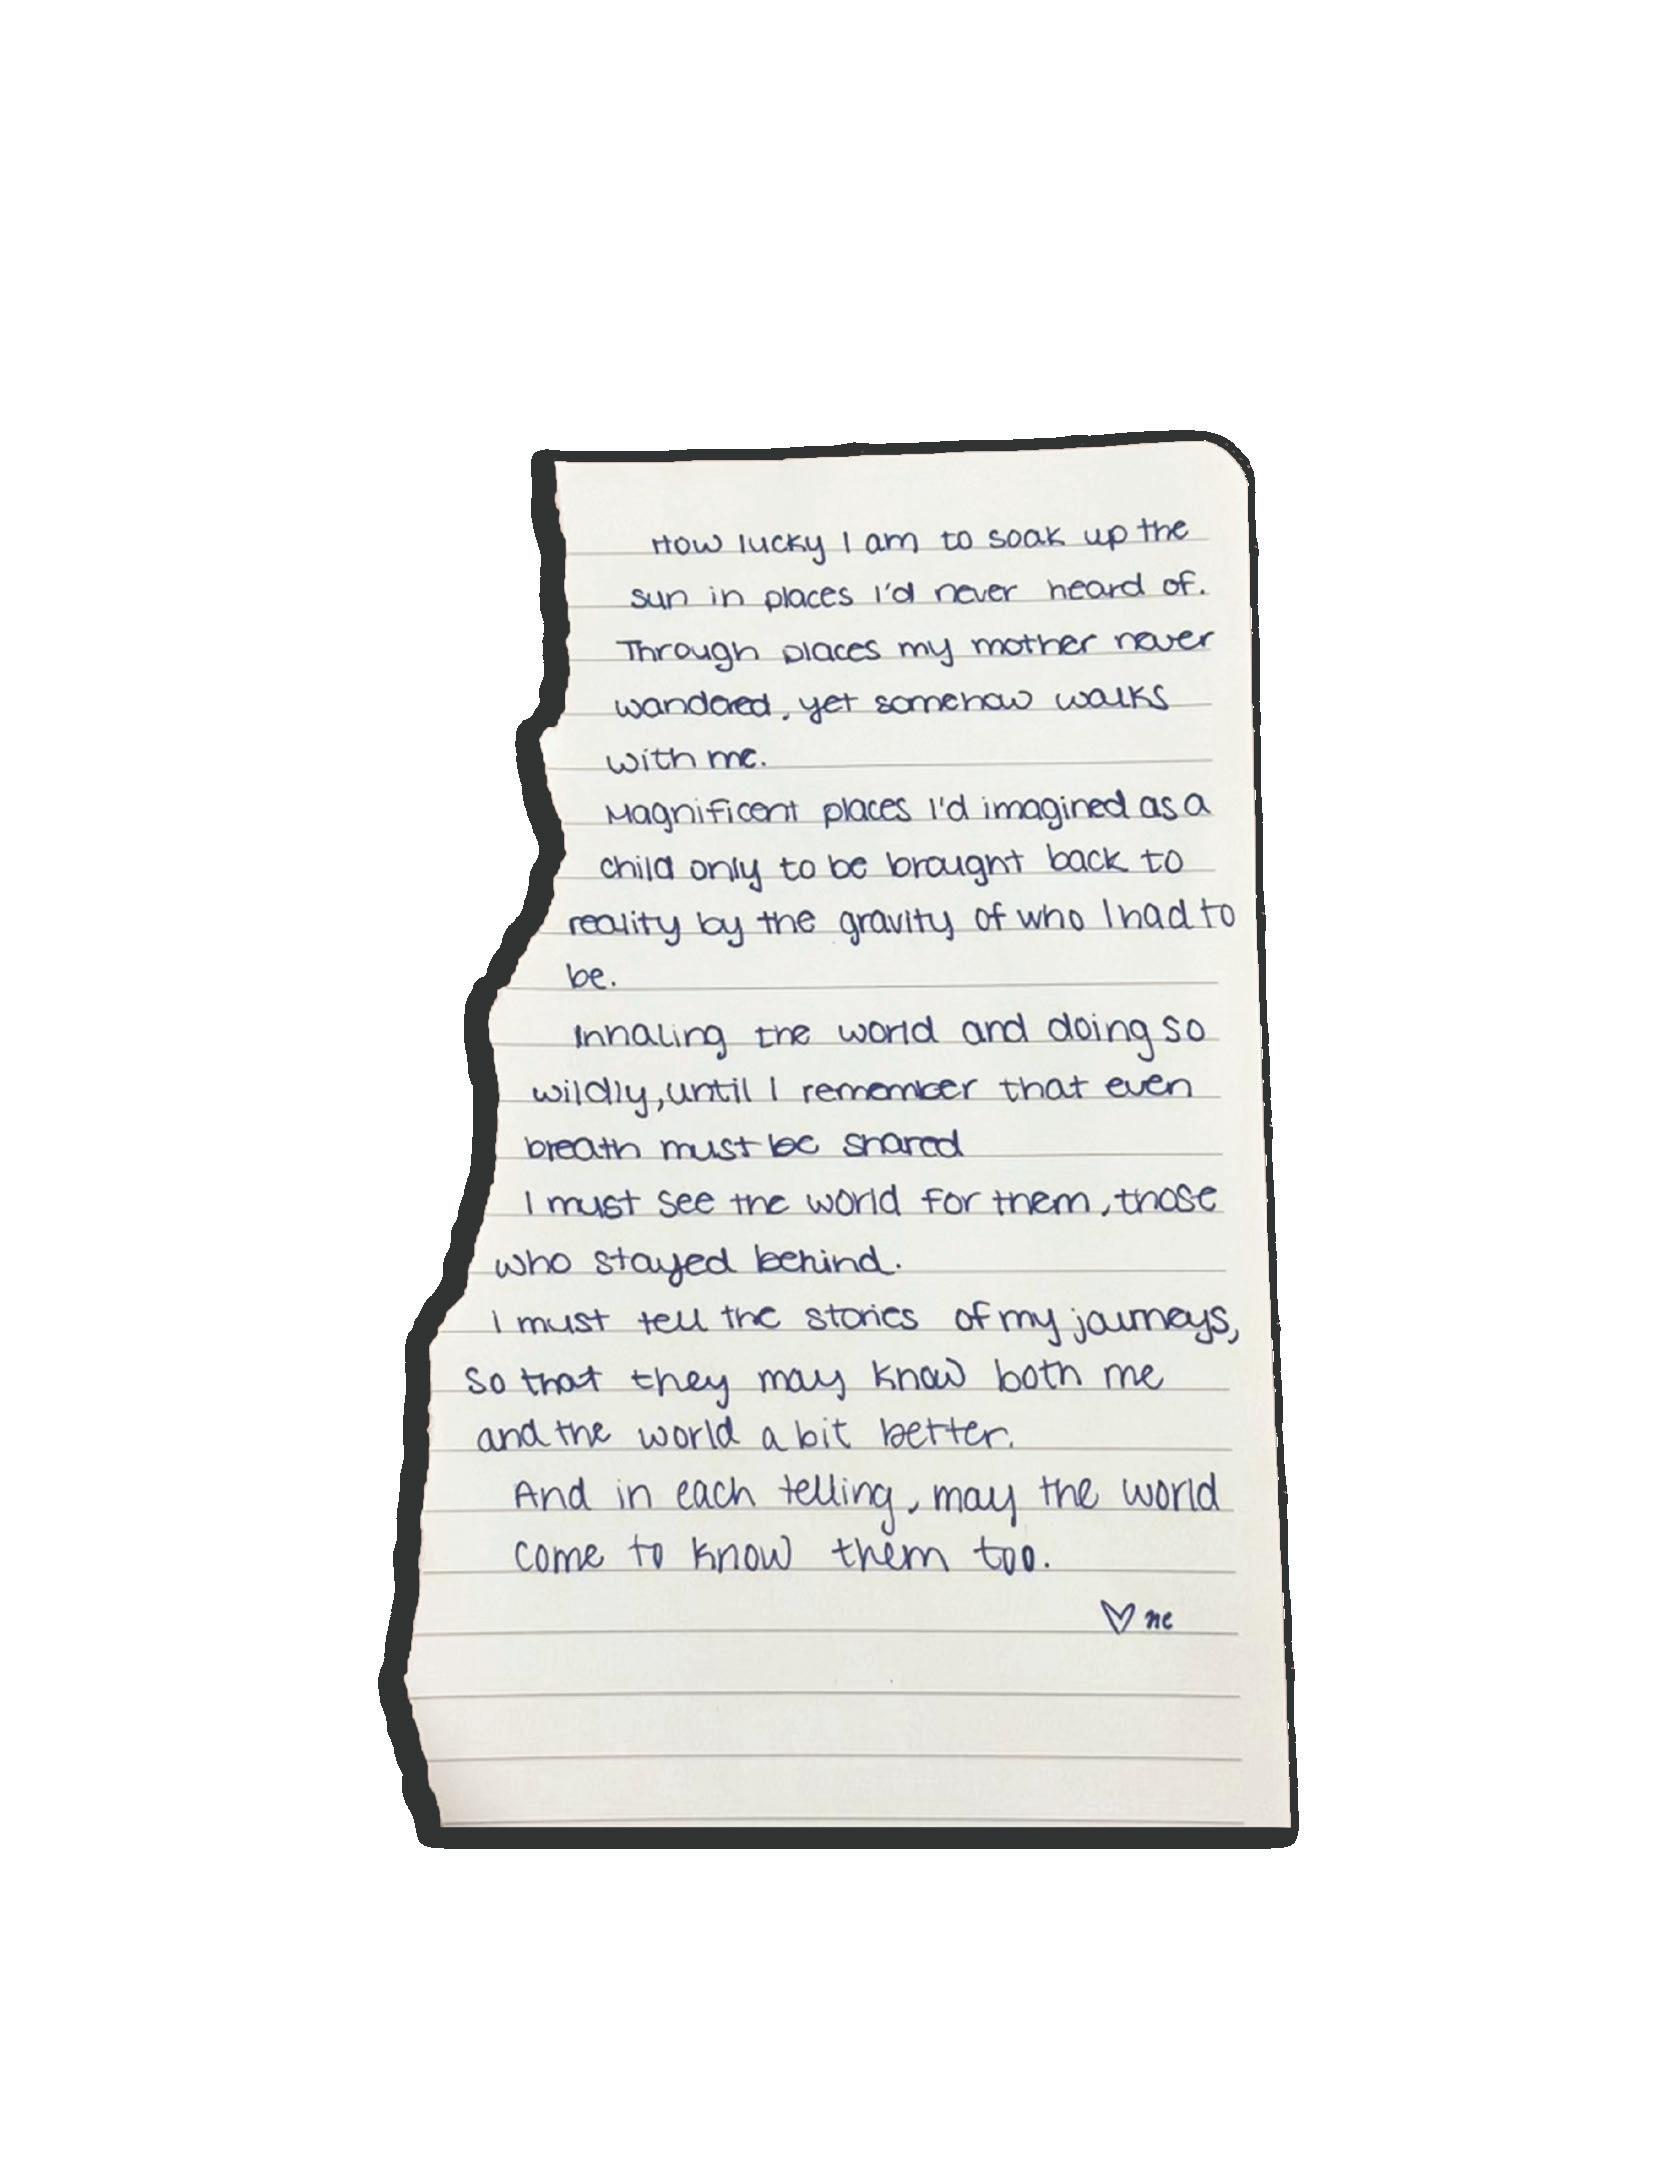 How lucky I am to soak up the
sun in places I'd never heard of.
Through places my mother never
wandered, yet somehow walks
with me.
Magnificent places I'd imagined as a
child only to be brought back to
reality by the gravity of who I had to
be.
Inhaling the world and doing so
wildly, until I remember that even
breath must be shared
I must see the world for them, those
who stayed behind.
I must tell the stories of my journeys,
so that they may know both me
and the world a bit better.
And in each telling, may the world
come to know them too.
♡ ne